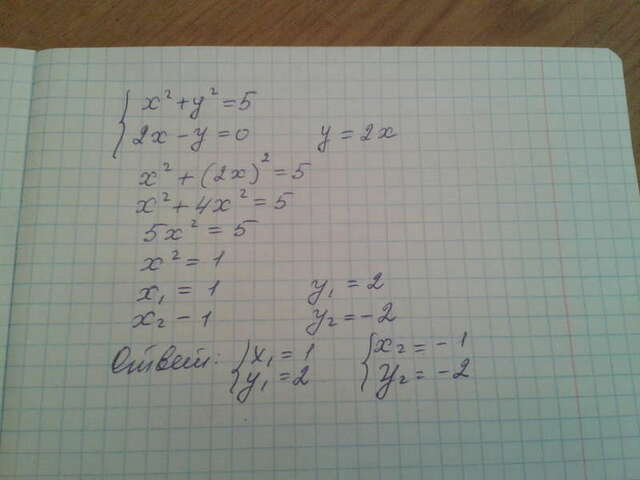 { x² + y² = 5
2x - y = 0 y = 2x
x² + (2x)² = 5
x² + 4x² = 5
5x² = 5
x² = 1
x₁ = 1 y₁ = 2
x₂ - 1 y₂ = -2
Ответ: { x₁ = 1 { x₂ = -1
y₁ = 2 y₂ = -2